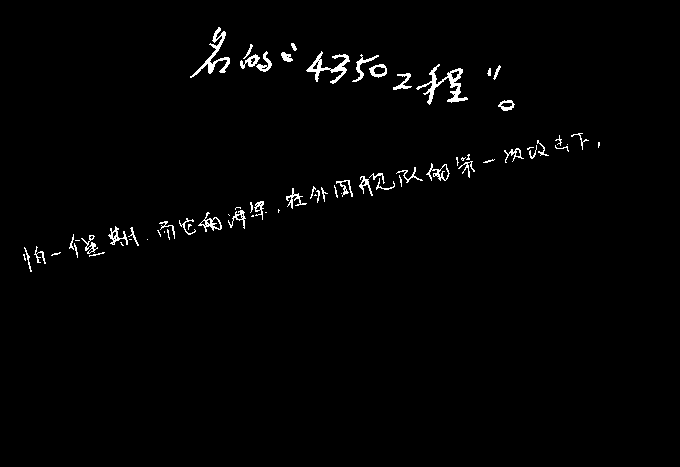 名的“4350工程”。
怕一个星期.而它的海军,在外国舰队的第一次攻击下,